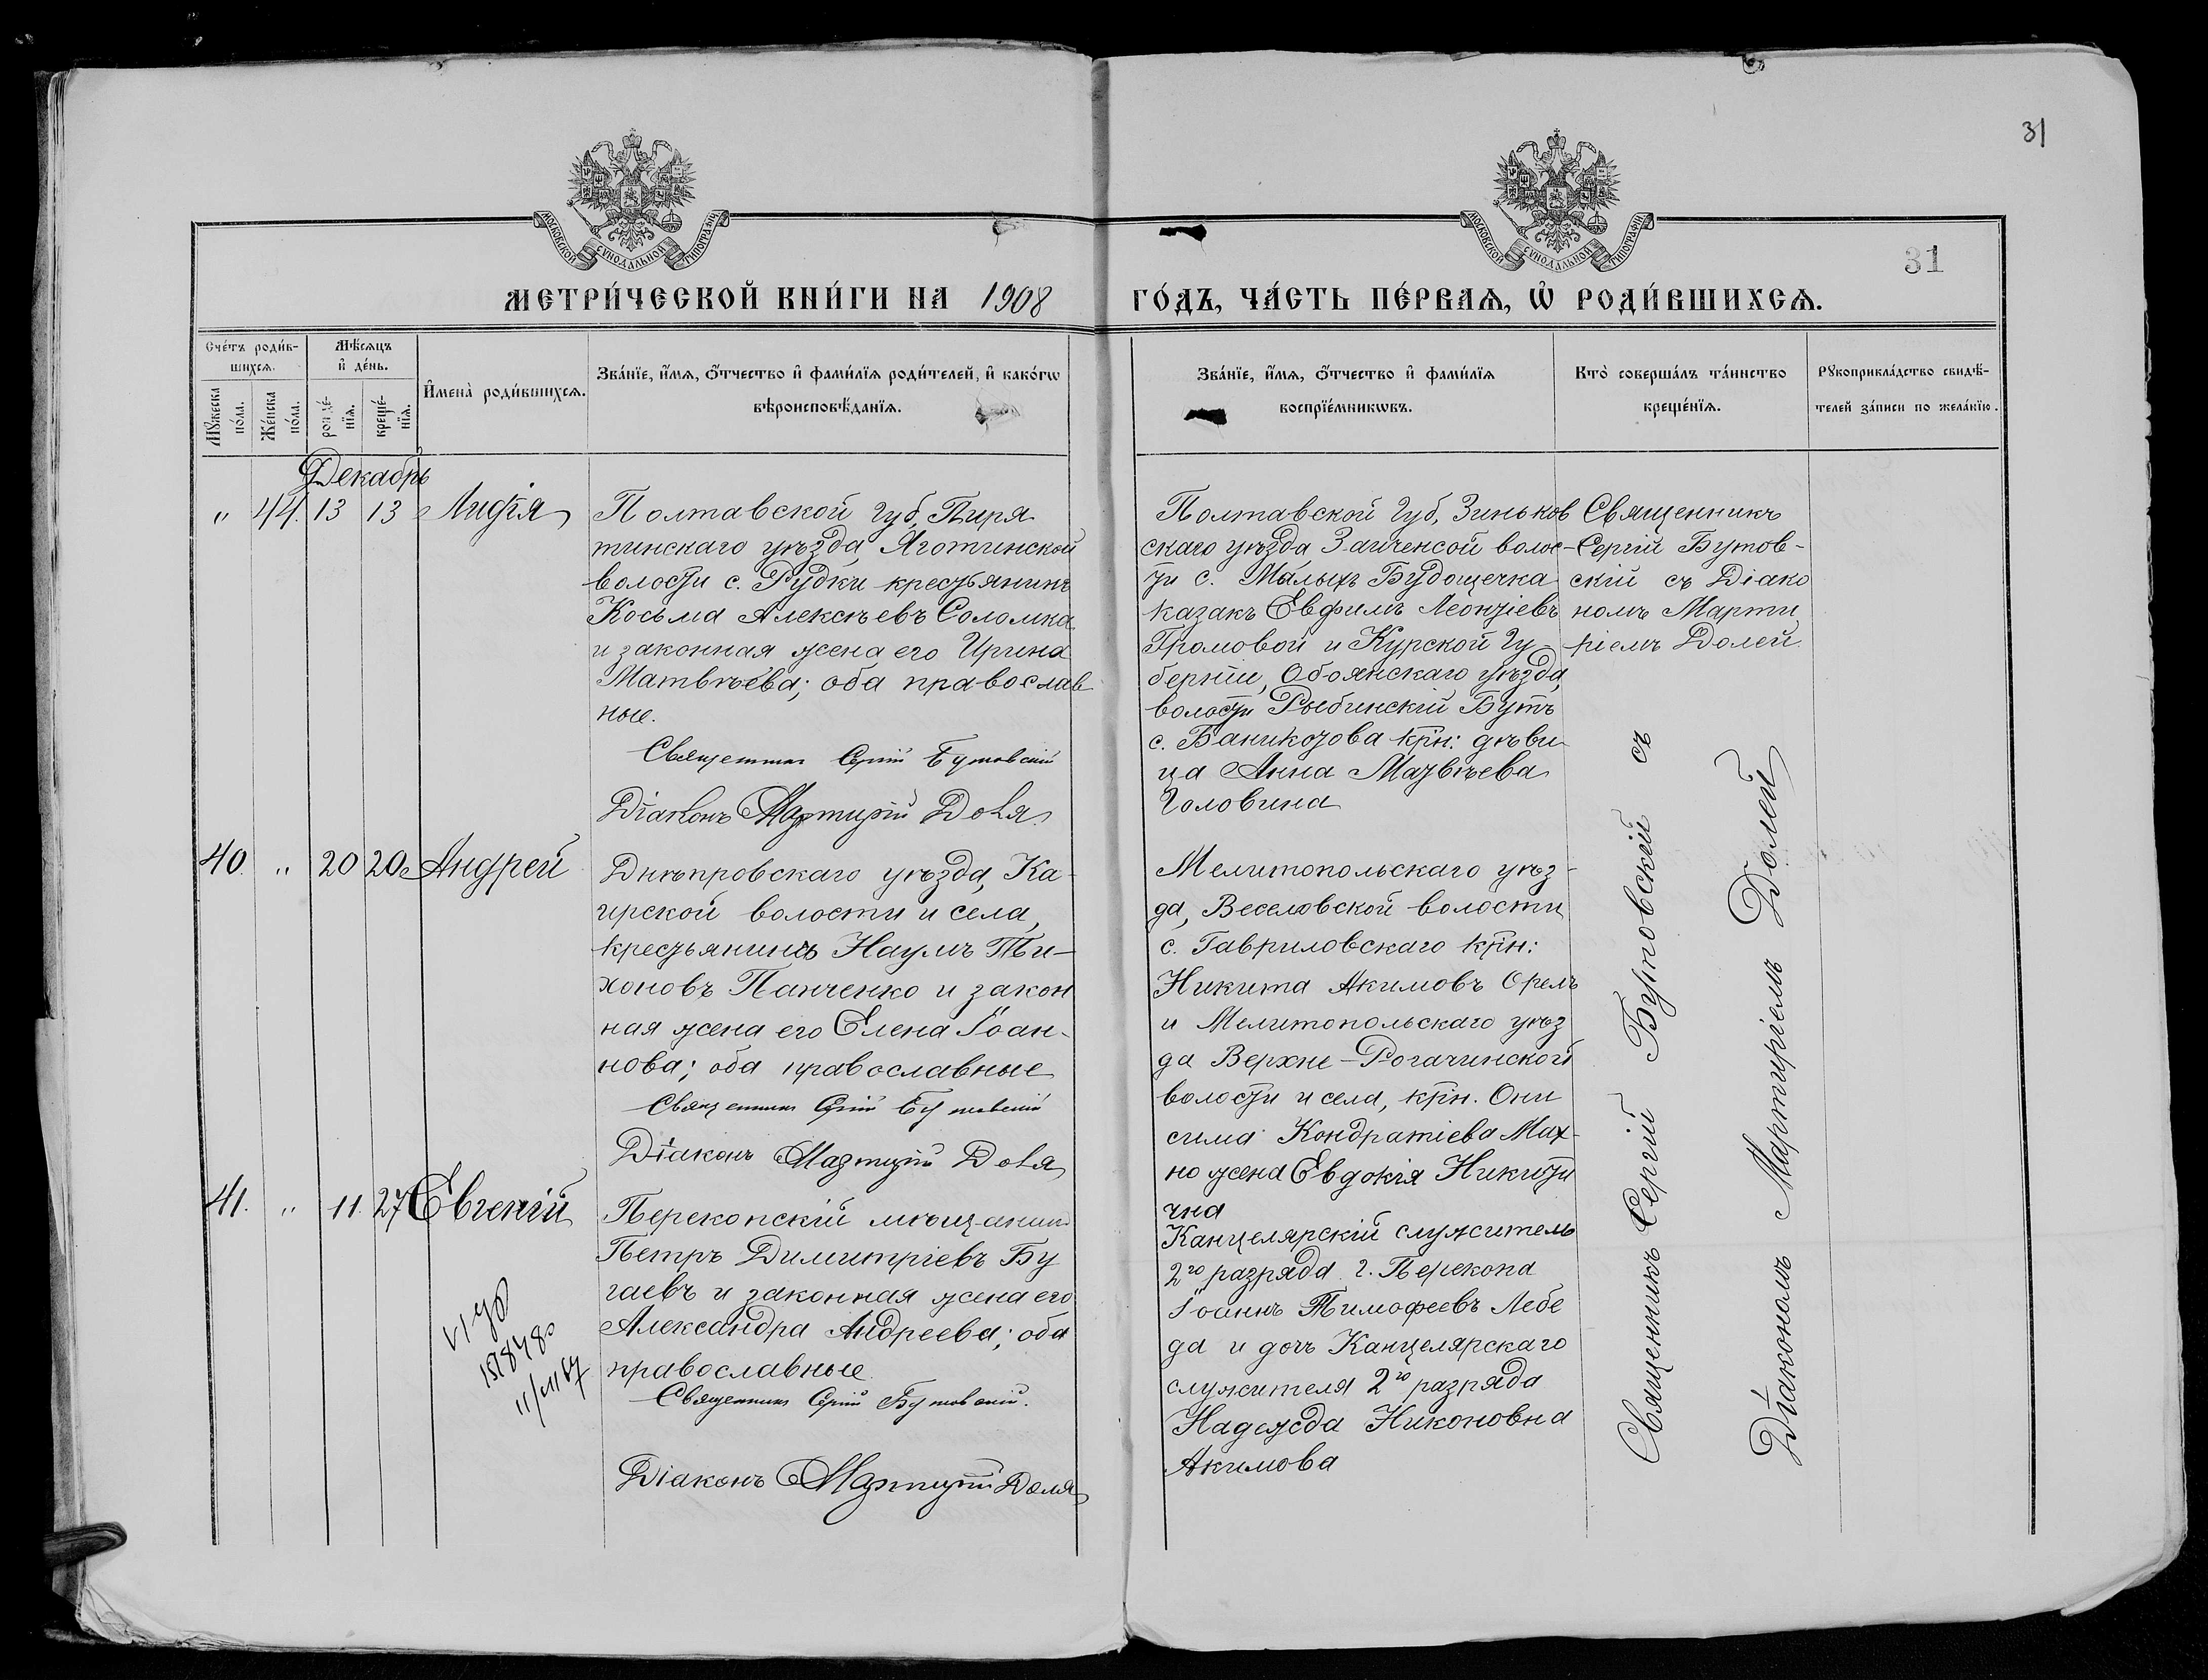 31
МОСКОВСКОЙ СѴНОДАЛЬНОЙ ТИПОГРАФІИ
МОСКОВСКОЙ СѴНОДАЛЬНОЙ ТИПОГРАФІИ
31
МЕТРИ́ЧЕСКОЙ КНИ́ГИ НА 1908 ГО́ДЪ, ЧА́СТЬ ПЕ́РВАѦ, Ѽ РОДИ́ВШИХСѦ.
Сче́тъ роди́в-
шихсѧ.
Мꙋ́жеска
по́ла.
Же́нска
по́ла.
Мѣ́сѧцъ
и҆ де́нь.
рожде́-
нїѧ.
креще́-
нїѧ.
И҆мена̀ роди́вшихсѧ.
Зва́нїе, и҆́мѧ, ѻ҆́тчество и҆ фами́лїѧ роди́телей, и҆ како́гѡ
вѣроисповѣ́данїѧ.
Зва́нїе, и҆́мѧ, ѻ҆́тчество и҆ фами́лїѧ
воспрїе́мникѡвъ.
Кто̀ соверша́лъ та́инство
креще́нїѧ.
Рꙋкоприкла́дство свидѣ́-
телей за́писи по жела́нїю.
Декабрь
" 44. 13 13 Лидія
Полтавской губ, Пиря
тинскаго уѣзда, Яготинской
волости с. Рудки крестьянинъ
Косьма Алексѣевъ Соломка
и законная жена его Ирина
Матвѣева; оба православ
ные.
Священникъ Сергій Бутовскій
Діаконъ Мартирій Доля
Полтавской Губ, Зиньков
скаго уѣзда Заиченсой волос-
ти с. Малыхъ Будощечка
казакъ Евфимъ Леонтіевъ
Громовой и Курской Гу
берніи, Обоянскаго уѣзда,
волости Рыбинскій Бутъ
с. Баникозова крн: дѣви
ца Анна Матвѣева
Головина
Священникъ
Сергій Бутов-
скій съ Діако
номъ Марти
ріемъ Долей.
40. " 20 20 Андрей
Днѣпровскаго уѣзда, Ка-
ирской волости и села,
крестьянинъ Наумъ Ти-
хоновъ Панченко и закон
ная жена его Елена Іоан-
нова; оба православные
Священникъ Сергій Бутовскій
Діаконъ Мартирій Доля
Мелитопольскаго уѣз-
да, Веселовской волости
с. Гавриловскаго крн:
Никита Акимовъ Орелъ
и Мелитопольскаго уѣз
да Верхне-Рогачинской
волости и села, крн. Они
сима Кондратіева Мах-
но жена Евдокія Никити
чна
41. " 11. 27 Евгеній
Перекопскій мѣщанинъ
Петръ Димитріевъ Бу
гаевъ и законная жена его
Александра Андреева; оба
православные.
Священникъ Сергій Бутовскій.
Діаконъ Мартирій Доля
Канцелярскій служитель
2го разряда г. Перекопа
Іоаннъ Тимофеевъ Лебе
да и дочь Канцелярскаго
служителя 2го разряда
Надежда Никоновна
Акимова
Священникъ Сергій Бутовскій съ
Діакономъ Мартиріемъ Долей